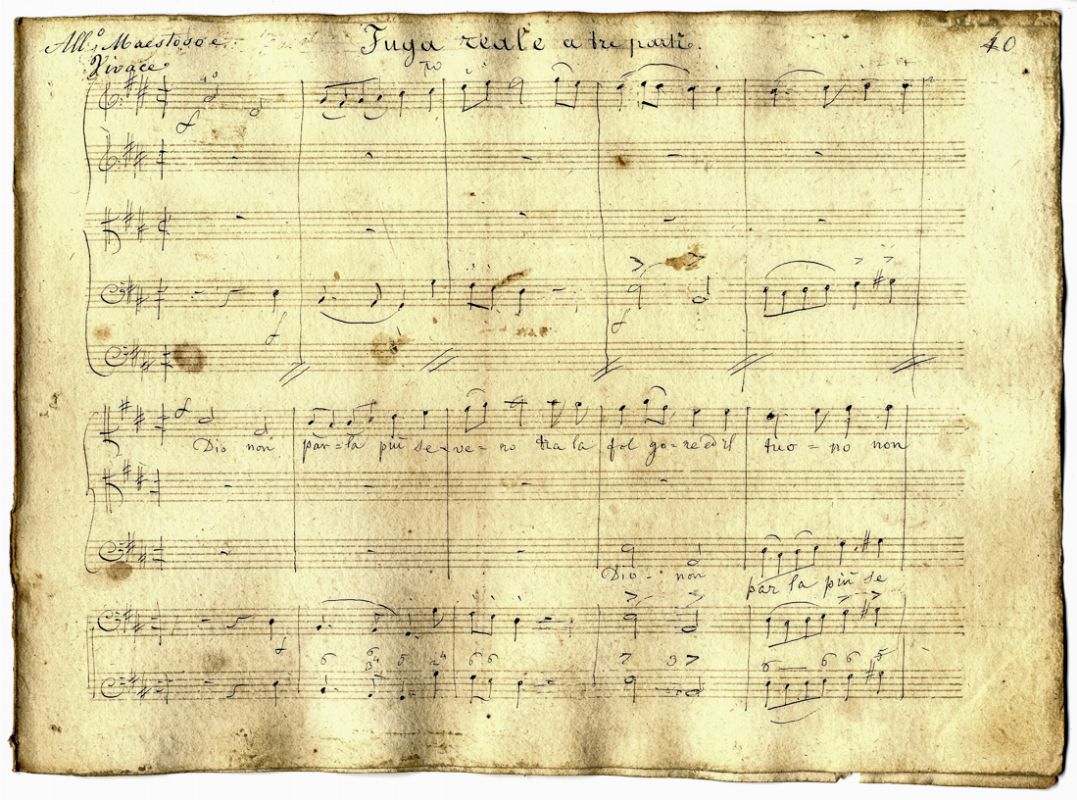 Fuga reale a tre parti.
40
All.º Maestoso e
Vivace.
Dio non par=la più se=ve=no tra la fol go=re ed il tuo=no non
Dio - non par la più se
6 6 5 6 6 7 6 6 6 5